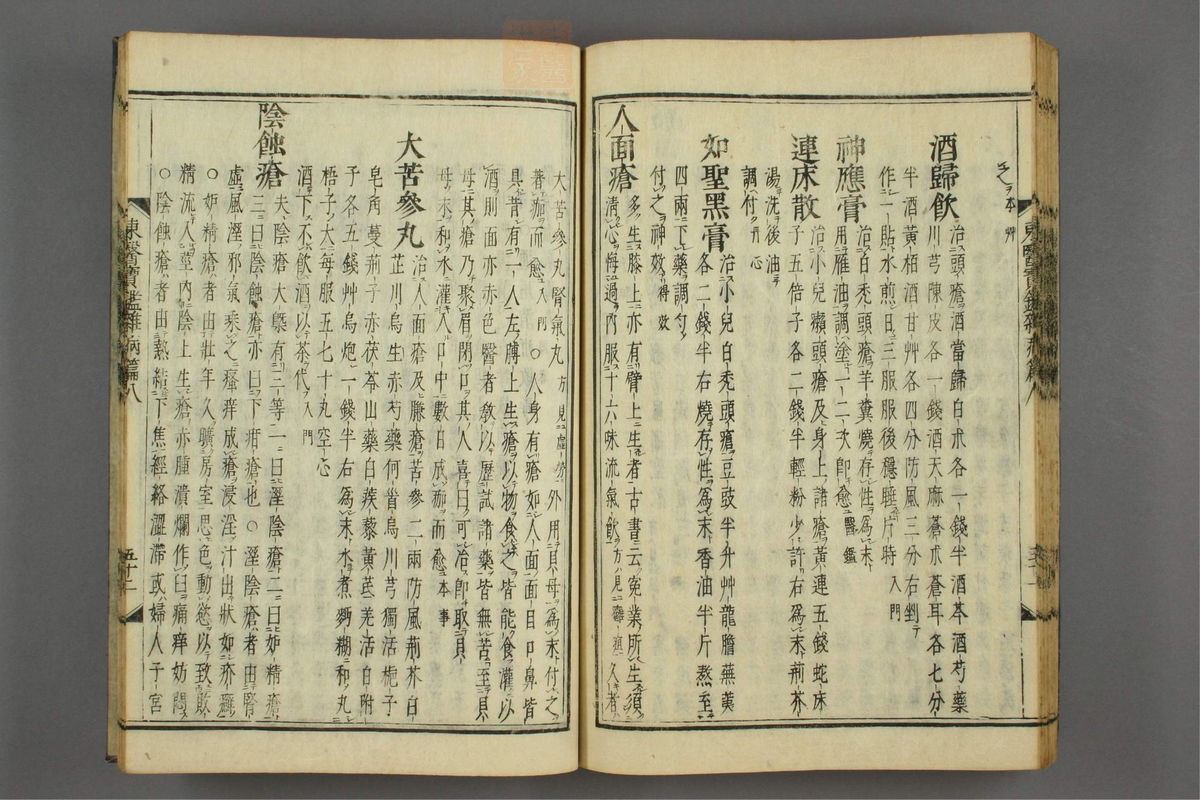 之ヲ本艸
酒歸飮 治頭瘡酒當歸白朮各一錢半酒芩酒芍藥
川芎陳皮各一錢酒天麻蒼朮蒼耳各七分
半酒黃栢酒甘艸各四分防風三分右剉
作一貼水煎日三服服後穩睡片時入門
神應膏 治白禿頭瘡羊糞燒存性爲末
用雁油調塗一二次卽愈醫鑑
連床散 治小兒癩頭瘡及身上諸瘡黃連五錢蛇床
子五倍子各二錢半輕粉少許右爲末荊芥
湯洗後油
調付丹心
如聖黑膏 治小兒白禿頭瘡豆豉半升艸龍膽蕪荑
各二錢半右燒存性爲末香油半斤熬至
四兩下藥調勻
付之神效得效
人面瘡 多生膝上亦有臂上生者古書云寃業所生須
淸心悔過內服十六味流氣飮方見癰疽久者
大苦參丸腎氣丸方見虛勞外用貝母爲末付之
著痂而愈入門○人身有瘡如人面面目口鼻皆
具昔有一人左膊上生瘡以物食之皆能食灌以
酒則面亦赤色醫者敎以歷試諸藥皆無苦至貝
母其瘡乃聚眉閉口其人喜曰可治卽取貝
母末和水灌入口中數日成痂而愈本事
大苦參丸 治人面瘡及臁瘡苦參二兩防風荊芥白
芷川烏生赤芍藥何首烏川芎獨活梔子
皂角蔓荊子赤茯苓山藥白蒺藜黃芪羌活白附
子各五錢艸烏炮一錢半右爲末水煮麪糊和丸
梧子大每服五七十丸空心
酒下不飮酒以茶代入門
陰蝕瘡 夫陰瘡大槩有三等一曰溼陰瘡二曰妬精瘡
三曰陰蝕瘡亦曰下疳瘡也○溼陰瘡者由腎
虛風溼邪氣乘之瘙痒成瘡浸淫汁出狀如疥癬
○妬精瘡者由壯年久曠房室思色動慾以致敗
精流入莖內陰上生瘡赤腫潰爛作臼痛痒妨悶
○陰蝕瘡者由熱結下焦經絡澀滯或婦人子宮
東醫寶鑑雜病篇八 五十二